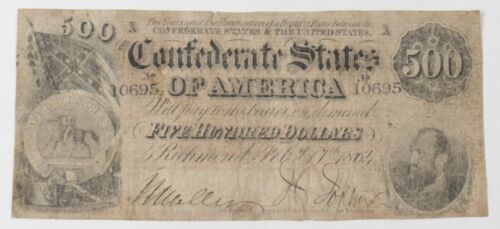 500
Two Years after the Ratification of a Treaty of Peace between the
CONFEDERATE STATES & THE UNITED STATES,
Confederate States
500
No 10695
No 10695
OF AMERICA
Will pay to the bearer on demand
FIVE HUNDRED DOLLARS
Richmond, Feb. 17th 1864